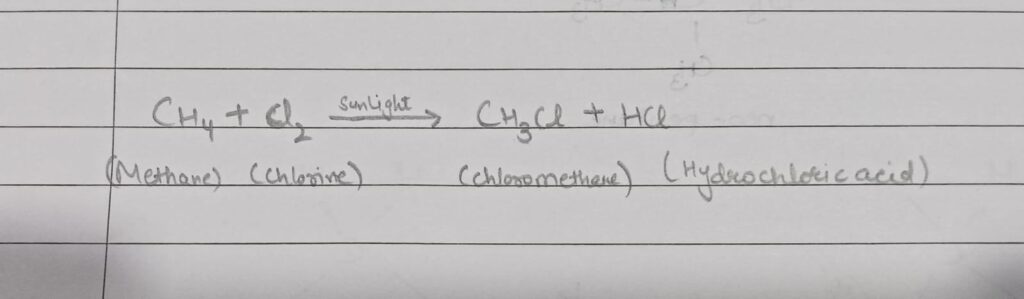 CH₄ + Cl₂ sunlight → CH₃Cl + HCl
(Methane) (Chlorine) (Chloromethane) (Hydrochloric acid)